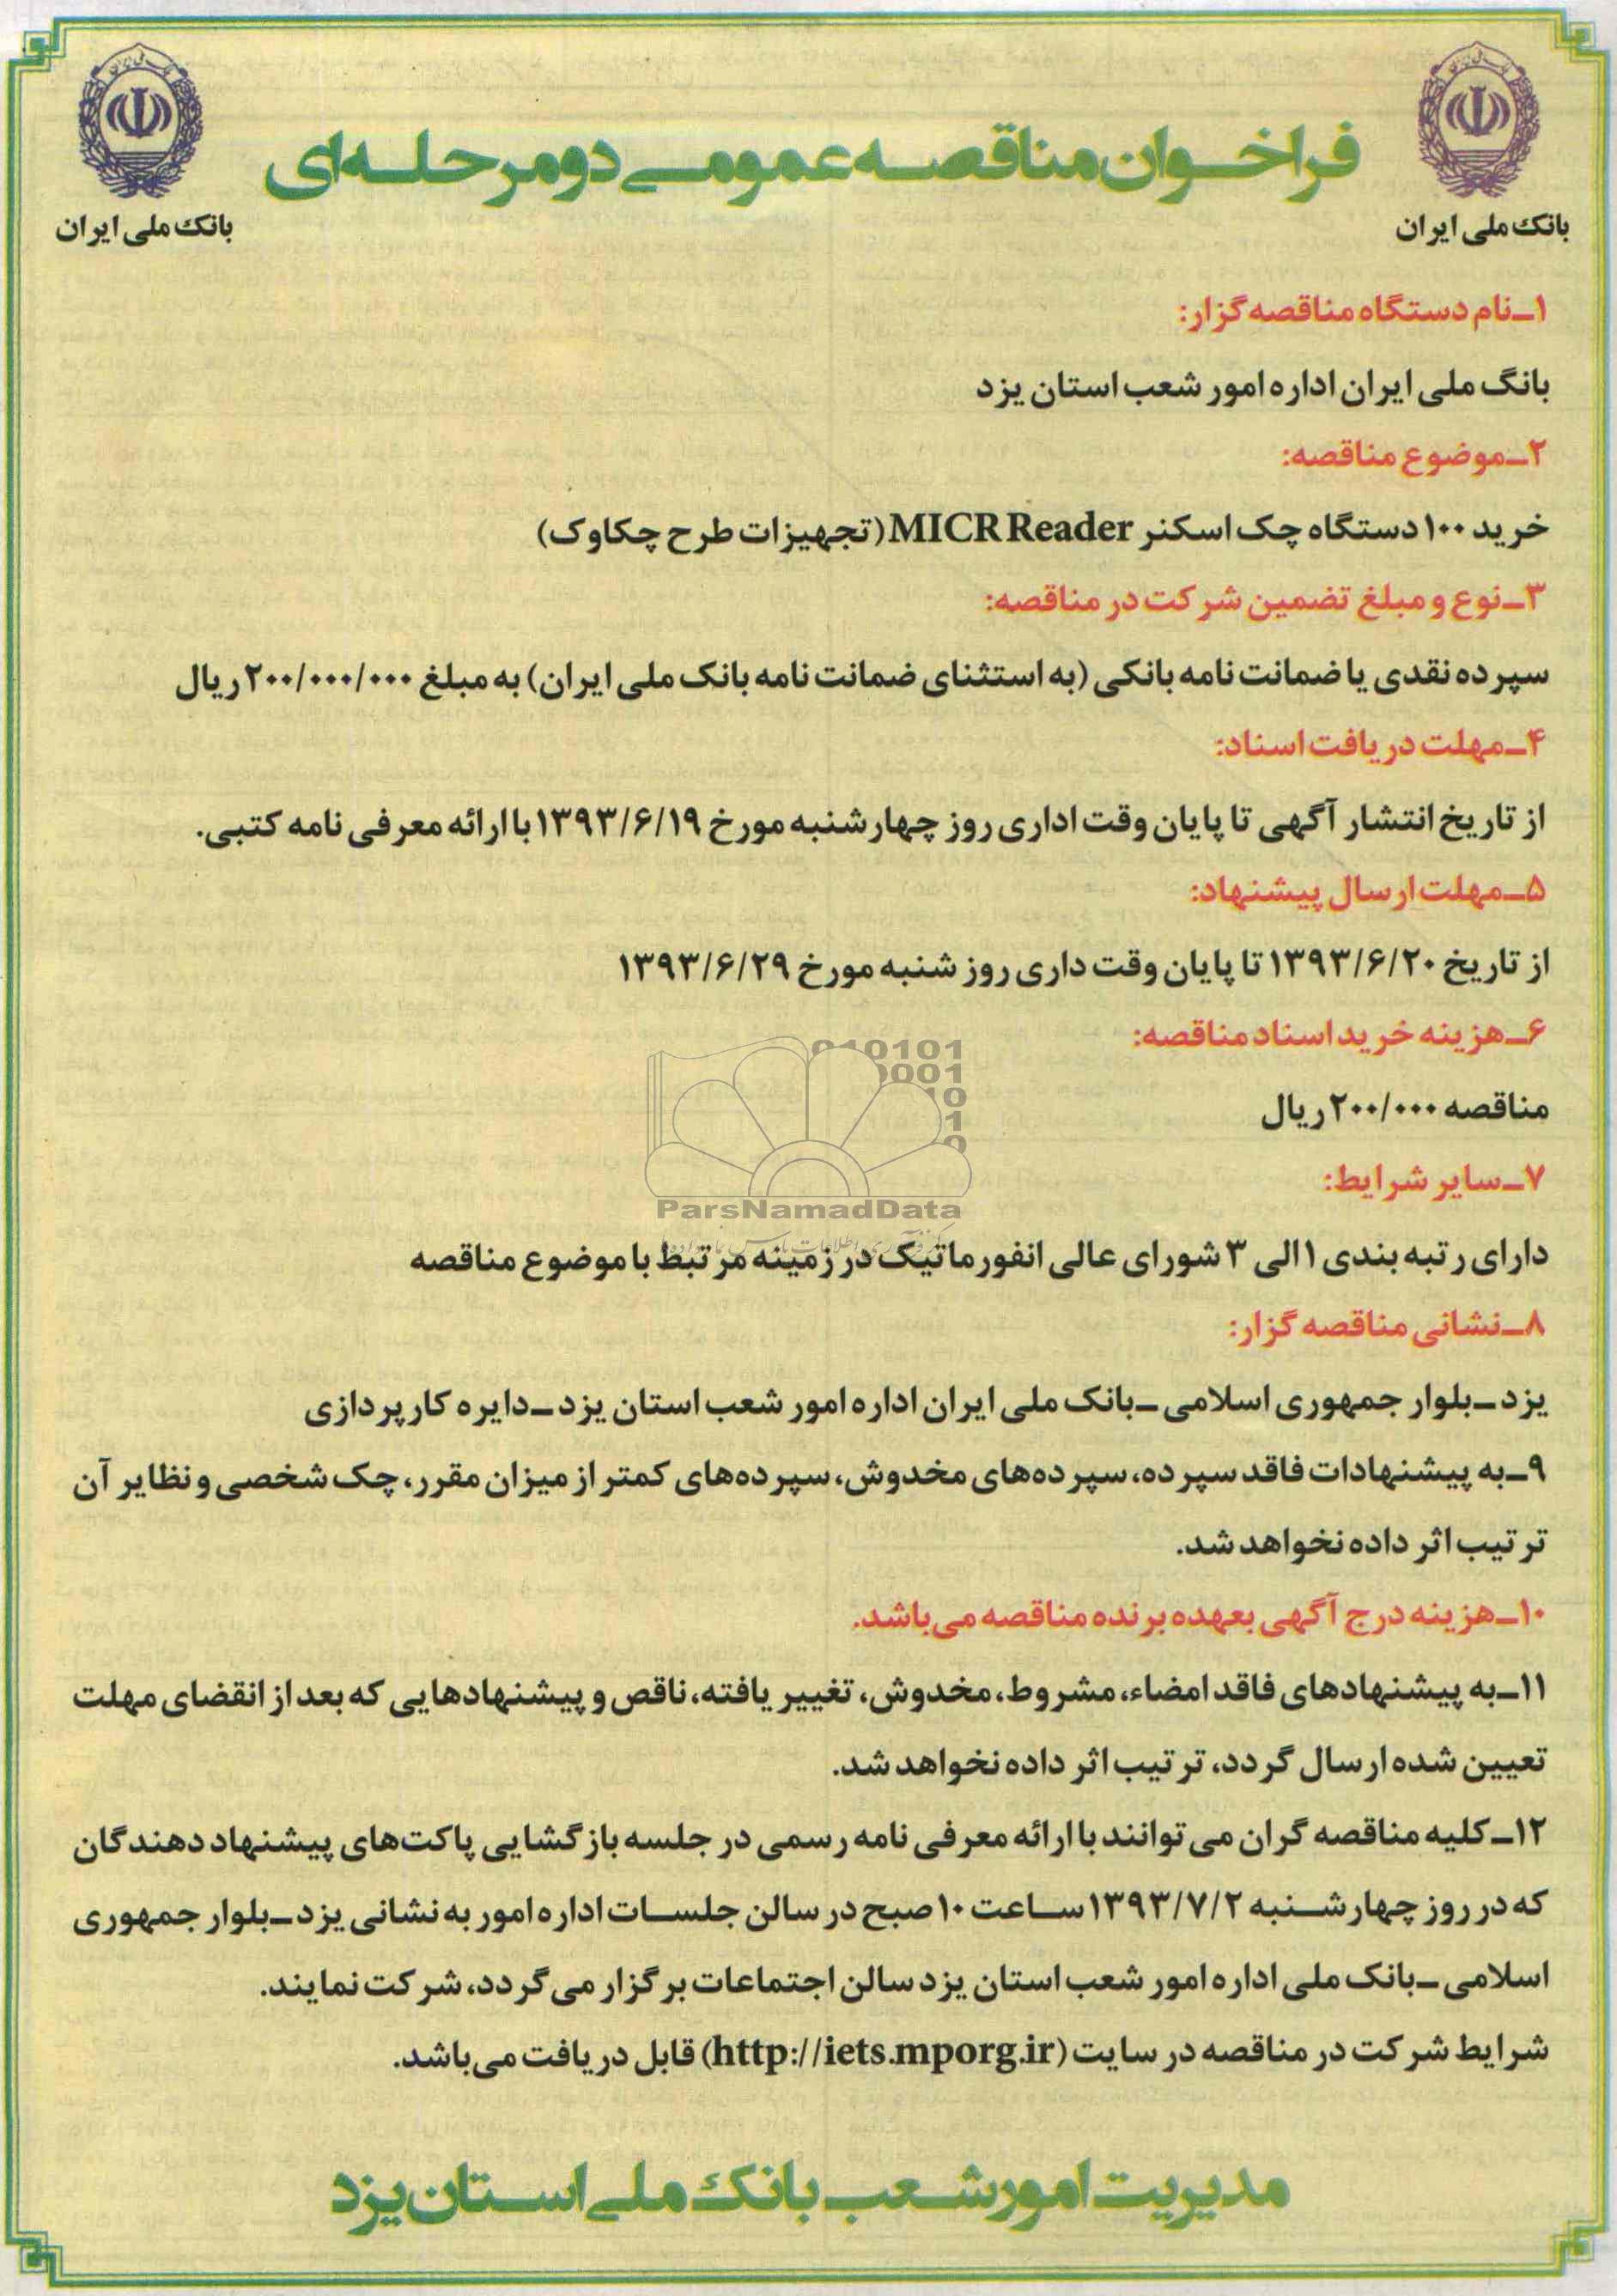 فراخوان مناقصه عمومی دو مرحله‌ای
بانک ملی ایران
بانک ملی ایران
۱ـ نام دستگاه مناقصه گزار:
بانگ ملی ایران اداره امور شعب استان یزد
۲ـ موضوع مناقصه:
خرید ۱۰۰ دستگاه چک اسکنر MICR Reader (تجهیزات طرح چکاوک)
۳ـ نوع و مبلغ تضمین شرکت در مناقصه:
سپرده نقدی یا ضمانت نامه بانکی (به استثنای ضمانت نامه بانک ملی ایران) به مبلغ ۲۰۰/۰۰۰/۰۰۰ ریال
۴ـ مهلت دریافت اسناد:
از تاریخ انتشار آگهی تا پایان وقت اداری روز چهارشنبه مورخ ۱۳۹۳/۶/۱۹ با ارائه معرفی نامه کتبی.
۵ـ مهلت ارسال پیشنهاد:
از تاریخ ۱۳۹۳/۶/۲۰ تا پایان وقت داری روز شنبه مورخ ۱۳۹۳/۶/۲۹
۶ـ هزینه خرید اسناد مناقصه:
مناقصه ۲۰۰/۰۰۰ ریال
۷ـ سایر شرایط:
ParsNamadData
دارای رتبه بندی ۱ الی ۳ شورای عالی انفورماتیک در زمینه مرتبط با موضوع مناقصه
۸ـ نشانی مناقصه گزار:
یزد ـ بلوار جمهوری اسلامی ـ بانک ملی ایران اداره امور شعب استان یزد ـ دایره کارپردازی
۹ـ به پیشنهادات فاقد سپرده، سپرده‌های مخدوش، سپرده‌های کمتر از میزان مقرر، چک شخصی و نظایر آن
ترتیب اثر داده نخواهد شد.
۱۰ـ هزینه درج آگهی بعهده برنده مناقصه می‌باشد.
۱۱ـ به پیشنهادهای فاقد امضاء، مشروط، مخدوش، تغییر یافته، ناقص و پیشنهادهایی که بعد از انقضای مهلت
تعیین شده ارسال گردد، ترتیب اثر داده نخواهد شد.
۱۲ـ کلیه مناقصه گران می توانند با ارائه معرفی نامه رسمی در جلسه بازگشایی پاکت‌های پیشنهاد دهندگان
که در روز چهارشنبه ۱۳۹۳/۷/۲ ساعت ۱۰ صبح در سالن جلسات اداره امور به نشانی یزد ـ بلوار جمهوری
اسلامی ـ بانک ملی اداره امور شعب استان یزد سالن اجتماعات برگزار می‌گردد، شرکت نمایند.
شرایط شرکت در مناقصه در سایت (http://iets.mporg.ir) قابل دریافت می‌باشد.
مدیریت امور شعب بانک ملی استان یزد